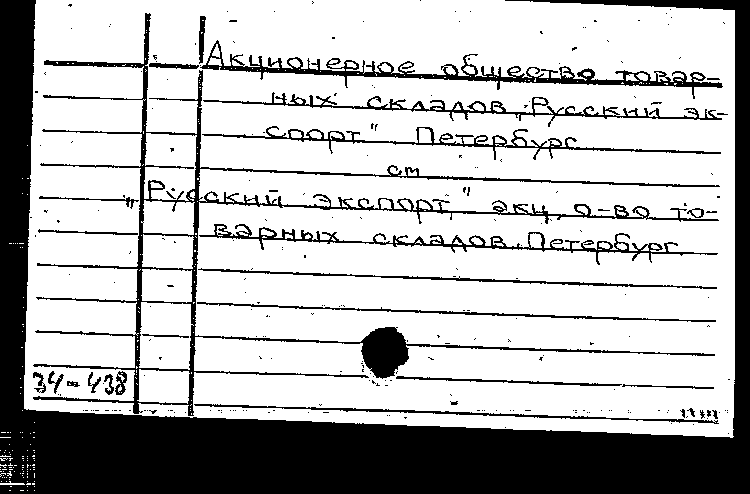 Акционерное общество товар-
ных складов „Русский эк-
спорт" Петербург
см
„Русский экспорт," акц. о-во то-
варных складов. Петербург.
34-438